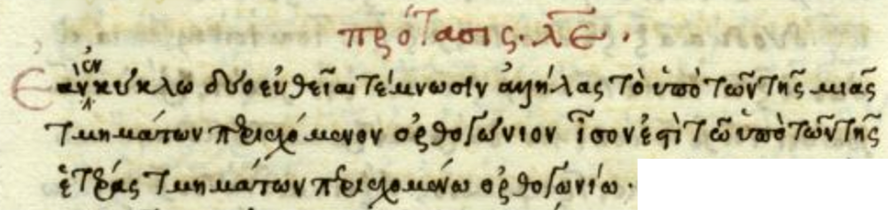 πρότασις. λε̅.
Ἐὰν ἐν κύκλω δύο εὐθεῖαι τέμνωσιν ἀλλήλας τὸ ὑπὸ τῶν τῆς μιᾶς
τμημάτων περιεχόμενον ὀρθογώνιον ἴσον ἐστὶ τῶ ὑπὸ τῶν τῆς
ἑτέρας τμημάτων περιεχομένω ὀρθογωνίω.